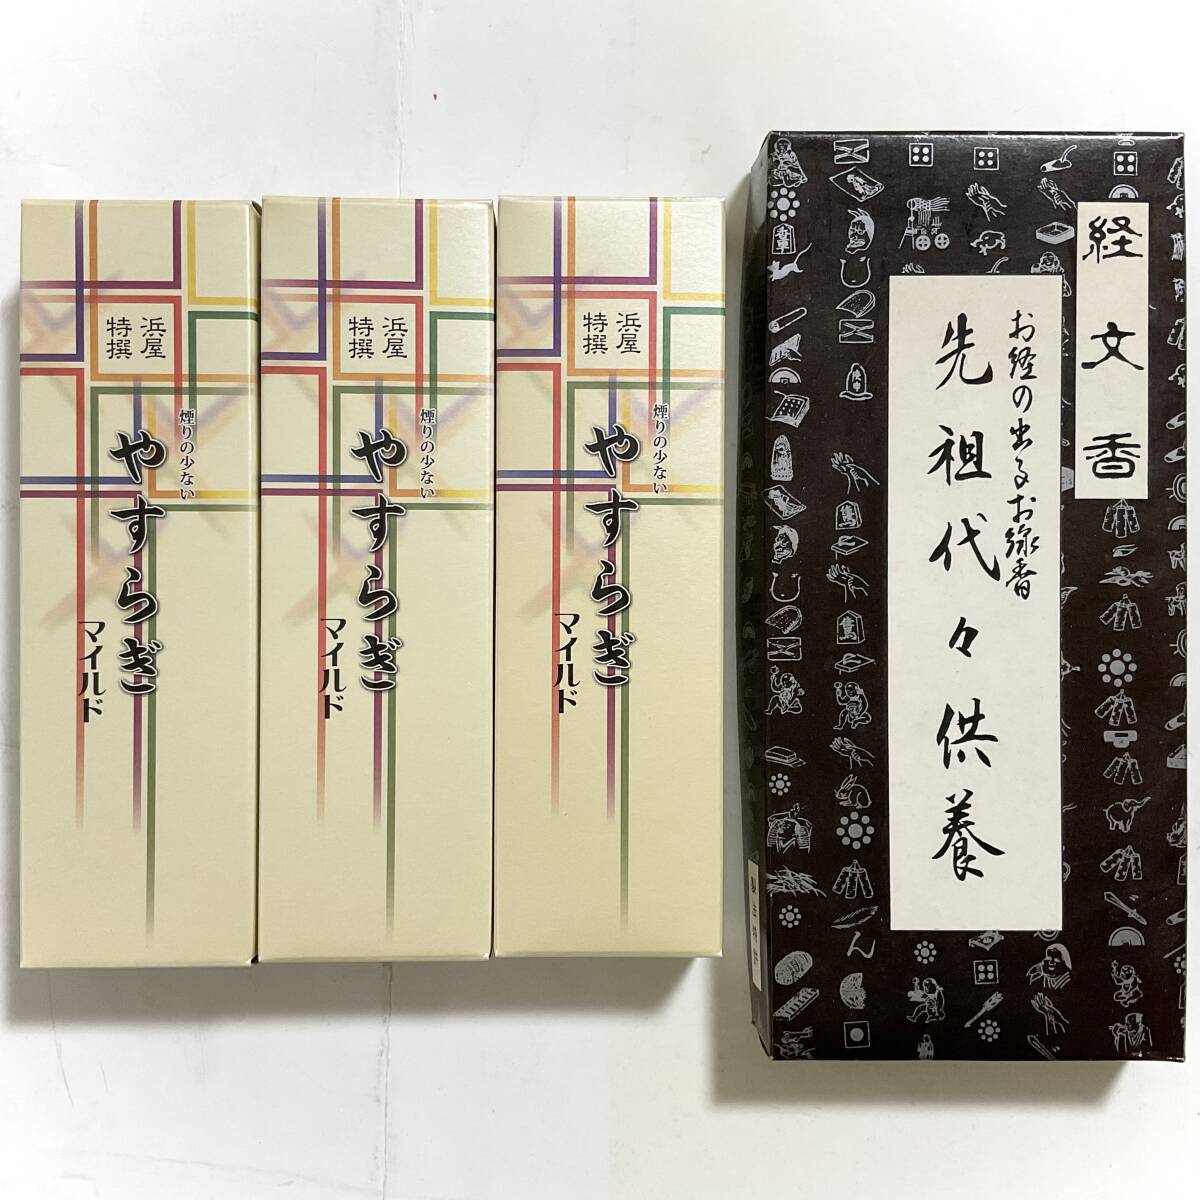 浜屋
特撰
煙りの少ない
やすらぎ
マイルド
浜屋
特撰
煙りの少ない
やすらぎ
マイルド
浜屋
特撰
煙りの少ない
やすらぎ
マイルド
経文香
お経の出るお線香
先祖代々供養
製法特許